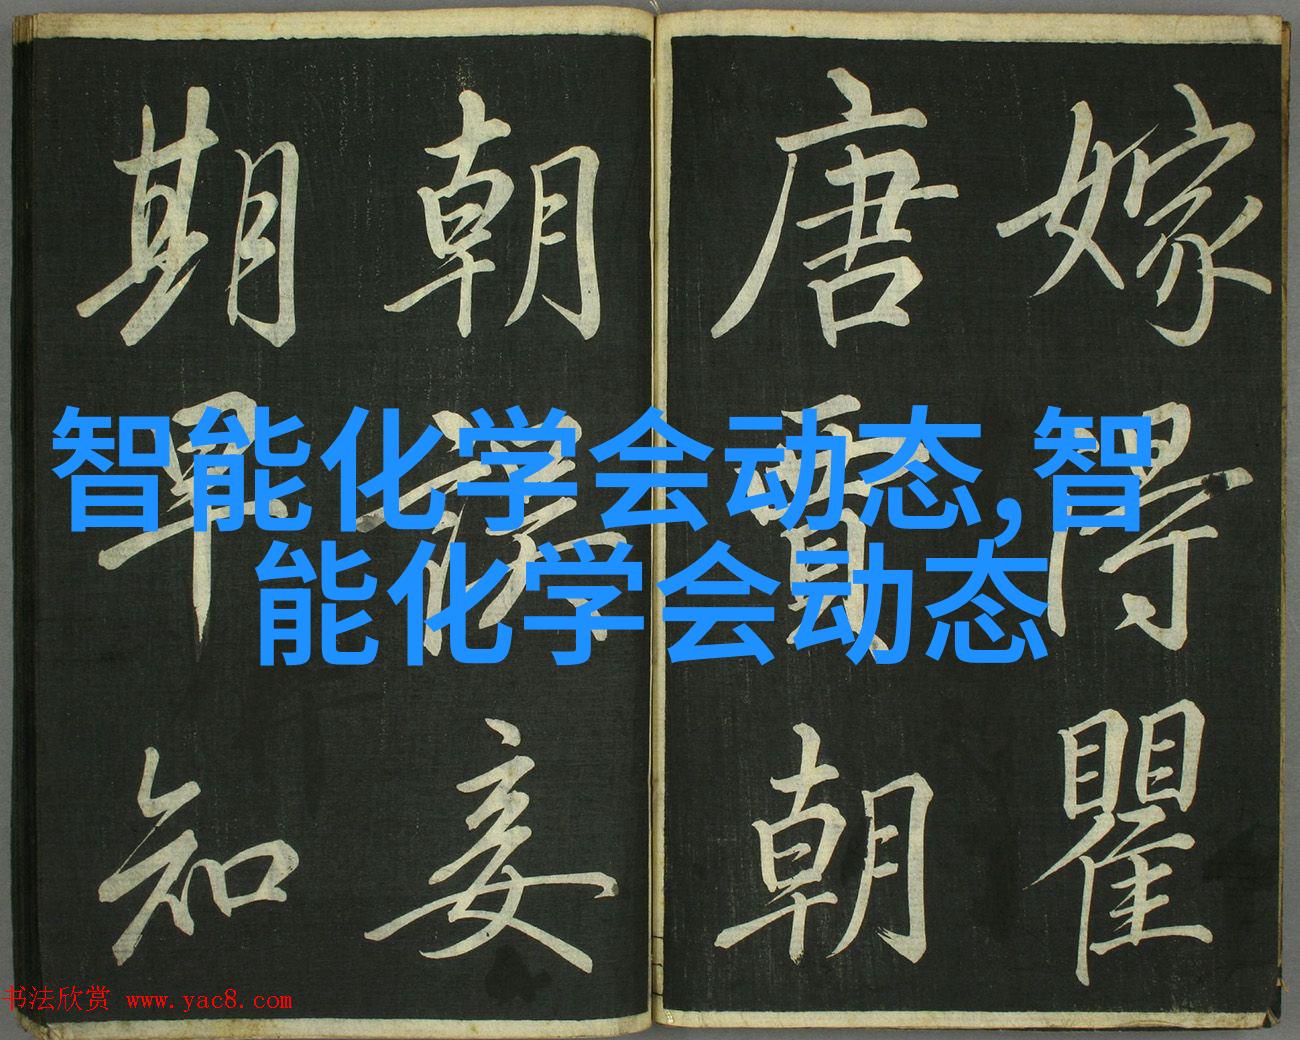 嫁得瞿
唐賈朝
朝誤妾
期早知
智能化学会动态,智
能化学会动态
书法欣赏 www.yac8.com